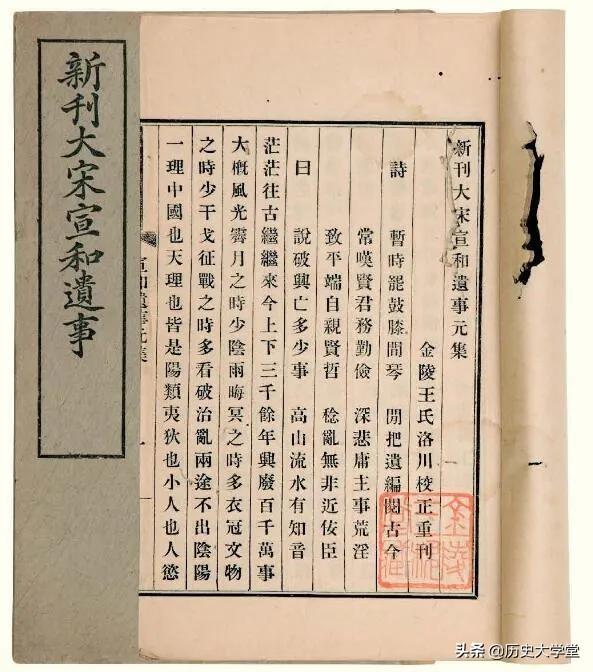 新刊大宋宣和遺事
新刊大宋宣和遺事元集
金陵王氏洛川校正重刊
詩 暫時罷鼓膝間琴 閒把遺編閱古今
常嘆賢君務勤儉 深悲庸主事荒淫
致平端自親賢哲 稔亂無非近佞臣
曰 說破興亡多少事 高山流水有知音
茫茫往古繼繼來今上下三千餘年興廢百千萬事
大概風光霽月之時少陰雨晦冥之時多衣冠文物
之時少干戈征戰之時多看破治亂兩途不出陰陽
一理中國也天理也皆是陽類夷狄也小人也人慾
宣和遺事元集 一
头条 @历史大学堂